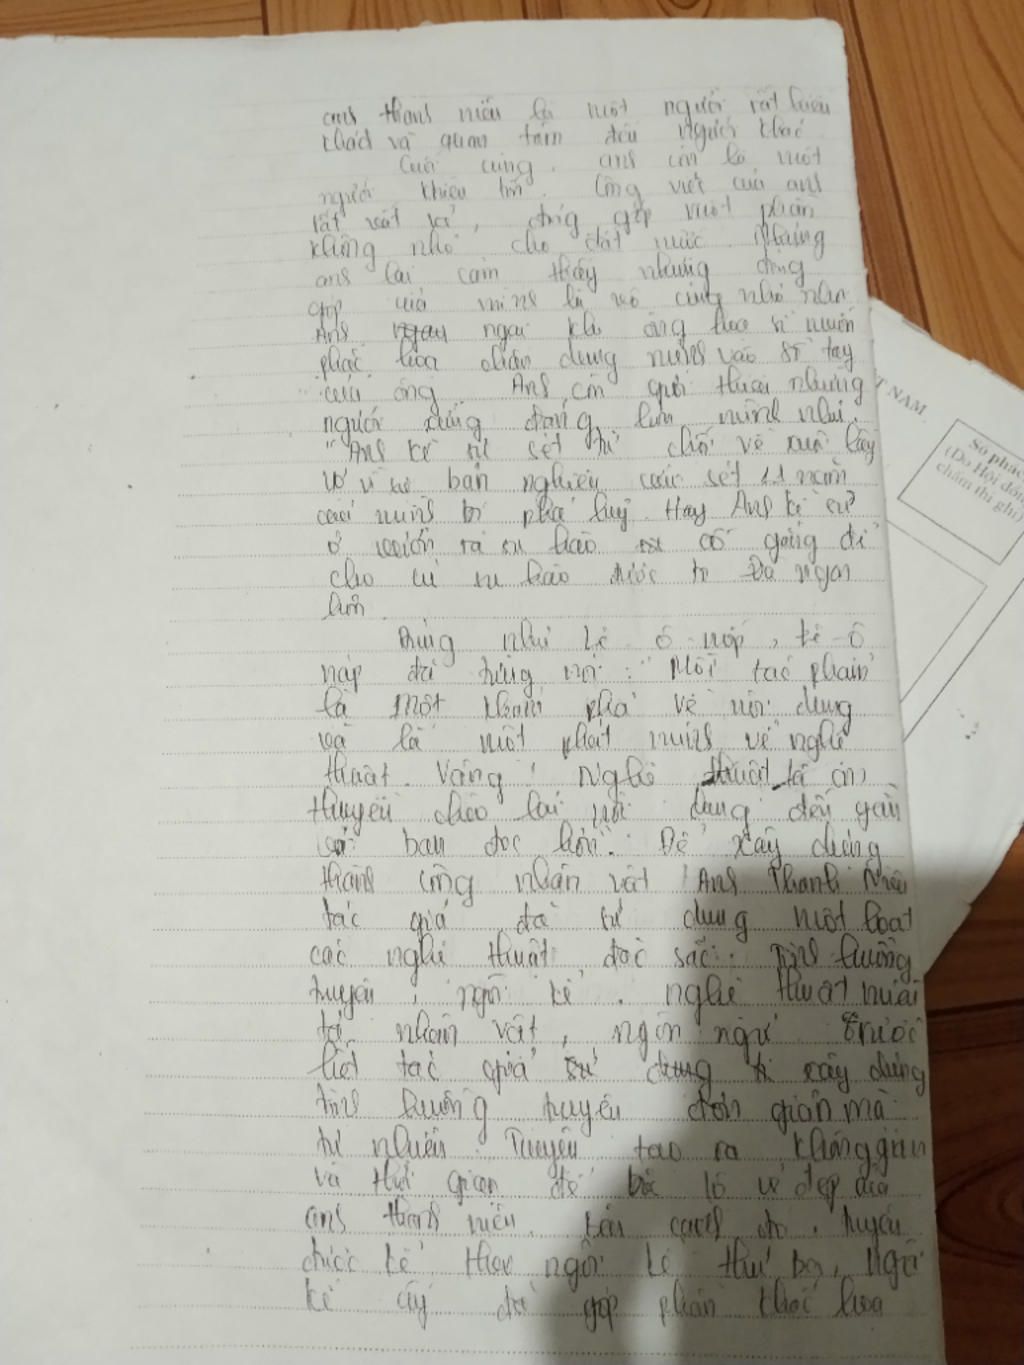 anh thanh niên là một người rất hiếu
khách và quan tâm đến người khác
Cuối cùng. anh còn là một
người khiêm tốn. Công việc của anh
rất vất vả, đóng góp một phần
không nhỏ cho đất nước. Nhưng
anh lại cảm thấy những đóng
góp của mình là vô cùng nhỏ nhoi
Anh ngại khi ông họa sĩ muốn
phác họa chân dung mình vào sổ tay
của ông. Anh còn giới thiệu những
người xứng đáng hơn mình như.
"Anh kĩ sư sét
bản sét 11 năm
Hay Anh kĩ sư
ở vườn ra su hào cố gắng để
cho củ su hào được to và ngon
hơn.
Đúng như Lê ô nốp, Lê ô
nốp đã từng nói: "Mỗi tác phẩm
là một khám phá về nội dung
và là một phát minh về nghệ
thuật. Vâng! Nghệ thuật là con
thuyền chèo lái nội dung đến gần
bạn đọc hơn. Để xây dựng
thành công nhân vật Anh Thanh Niên
tác giả đã sử dụng một loạt
các nghệ thuật đặc sắc. Tình huống
truyện, ngôi kể. nghệ thuật miêu
tả nhân vật, ngôn ngữ Trước
hết tác giả sử dụng xây dựng
tình huống truyện đơn giản mà
tự nhiên. Truyện tạo ra không gian
và thời gian để bộc lộ vẻ đẹp của
anh thanh niên. Bên cạnh đó, truyện
được kể theo ngôi kể thứ ba, ngôi
kể ấy đã góp phần khắc họa
T NAM
Số phác
(Do Hội đồn
chấm thi ghi)